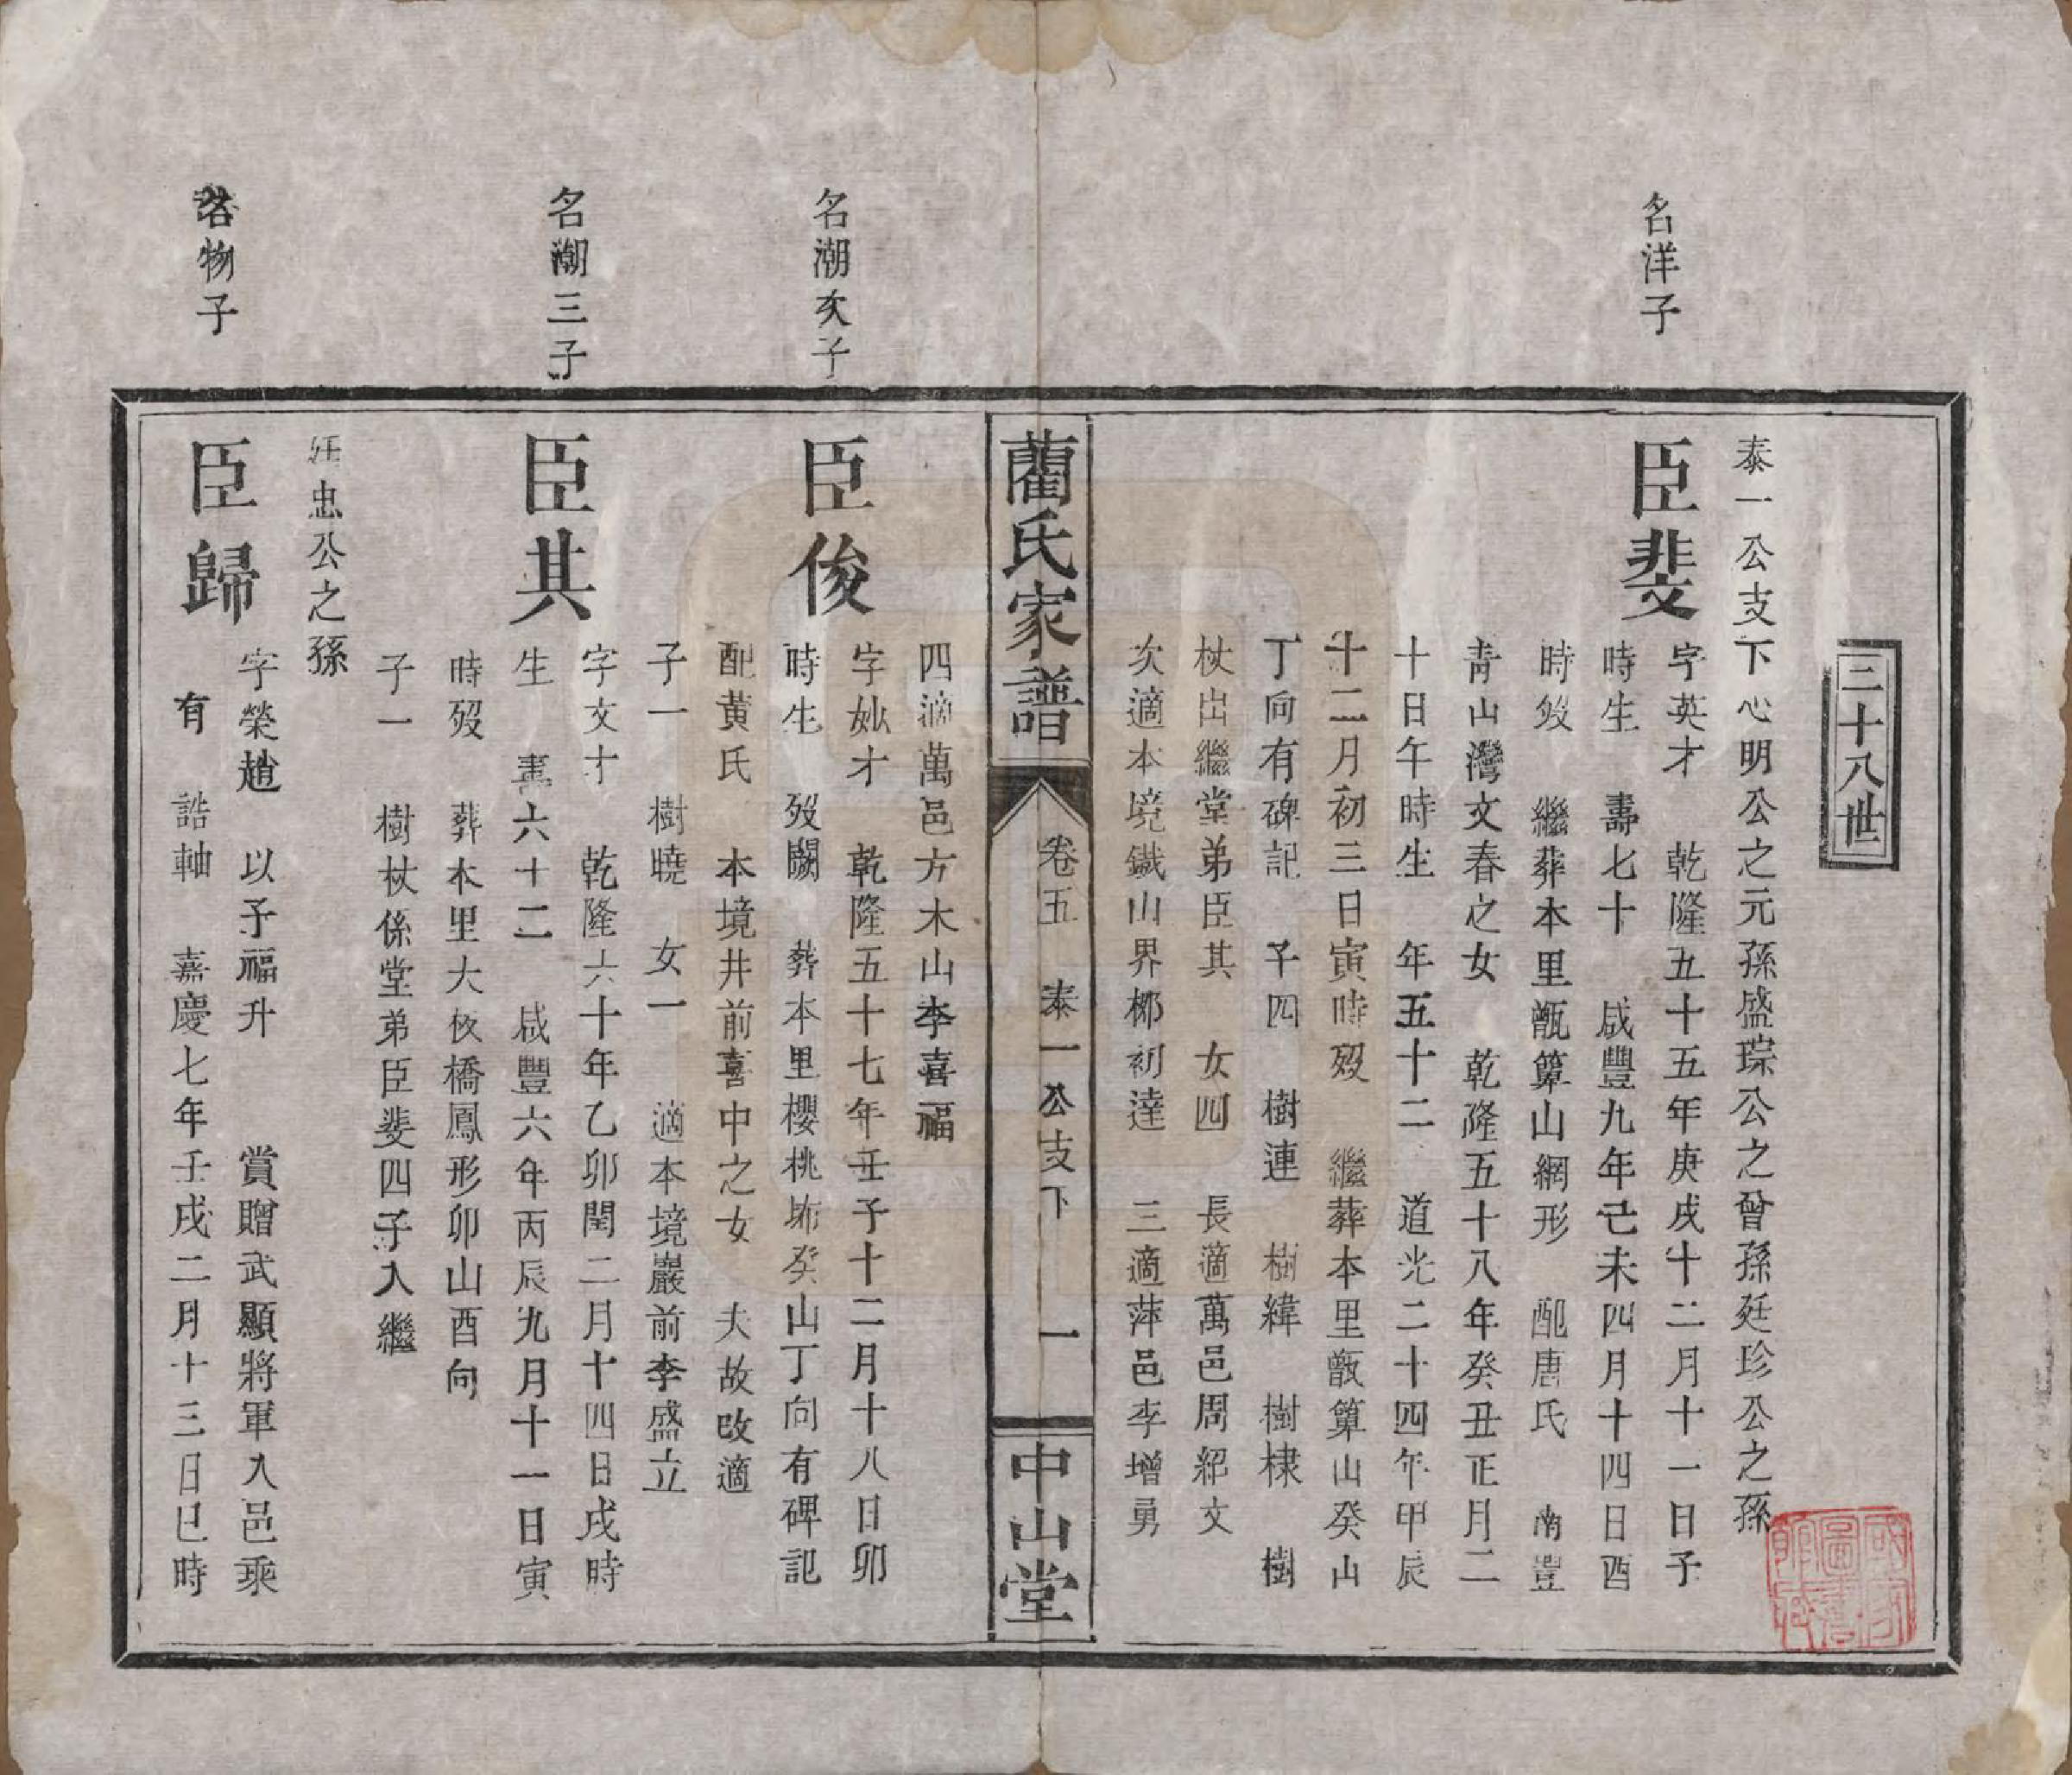 二十八世
泰一公支下心明公之元孫盛琮公之曾孫廷珍公之孫
名洋子
臣斐
字英才 乾隆五十五年庚戌十二月十一日子
時生 壽七十 咸豐九年己未四月十四日酉
時歿 繼葬本里甑箅山網形 配唐氏 南豐
青山灣文春之女 乾隆五十八年癸丑正月二
十日午時生 年五十二 道光二十四年甲辰
十二月初三日寅時歿 繼葬本里甑箅山癸山
丁向有碑記 子四 樹連 樹緯 樹棣 樹
杖出繼堂弟臣其 女四 長適萬邑周紹文
次適本境鐵山界鄉初達 三適萍邑李增勇
藺氏家譜
卷五 泰一公支下 一
中山堂
四適萬邑方木山李喜福
名潮次子
臣俊
字妙才 乾隆五十七年壬子十二月十八日卯
時生 歿闕 葬本里櫻桃垇癸山丁向有碑記
配黃氏 本境井前喜中之女 夫故改適
子一 樹曉 女一 適本境巖前李盛立
名潮三子
臣其
字文才 乾隆六十年乙卯閏二月十四日戌時
生 壽六十二 咸豐六年丙辰九月十一日寅
時歿 葬本里大枚橋鳳形卯山酉向
子一 樹杖係堂弟臣斐四子入繼
廷忠公之孫
名物子
臣歸
字榮趙 以予福升 賞贈武顯將軍入邑乘
有 誥軸 嘉慶七年壬戌二月十三日巳時